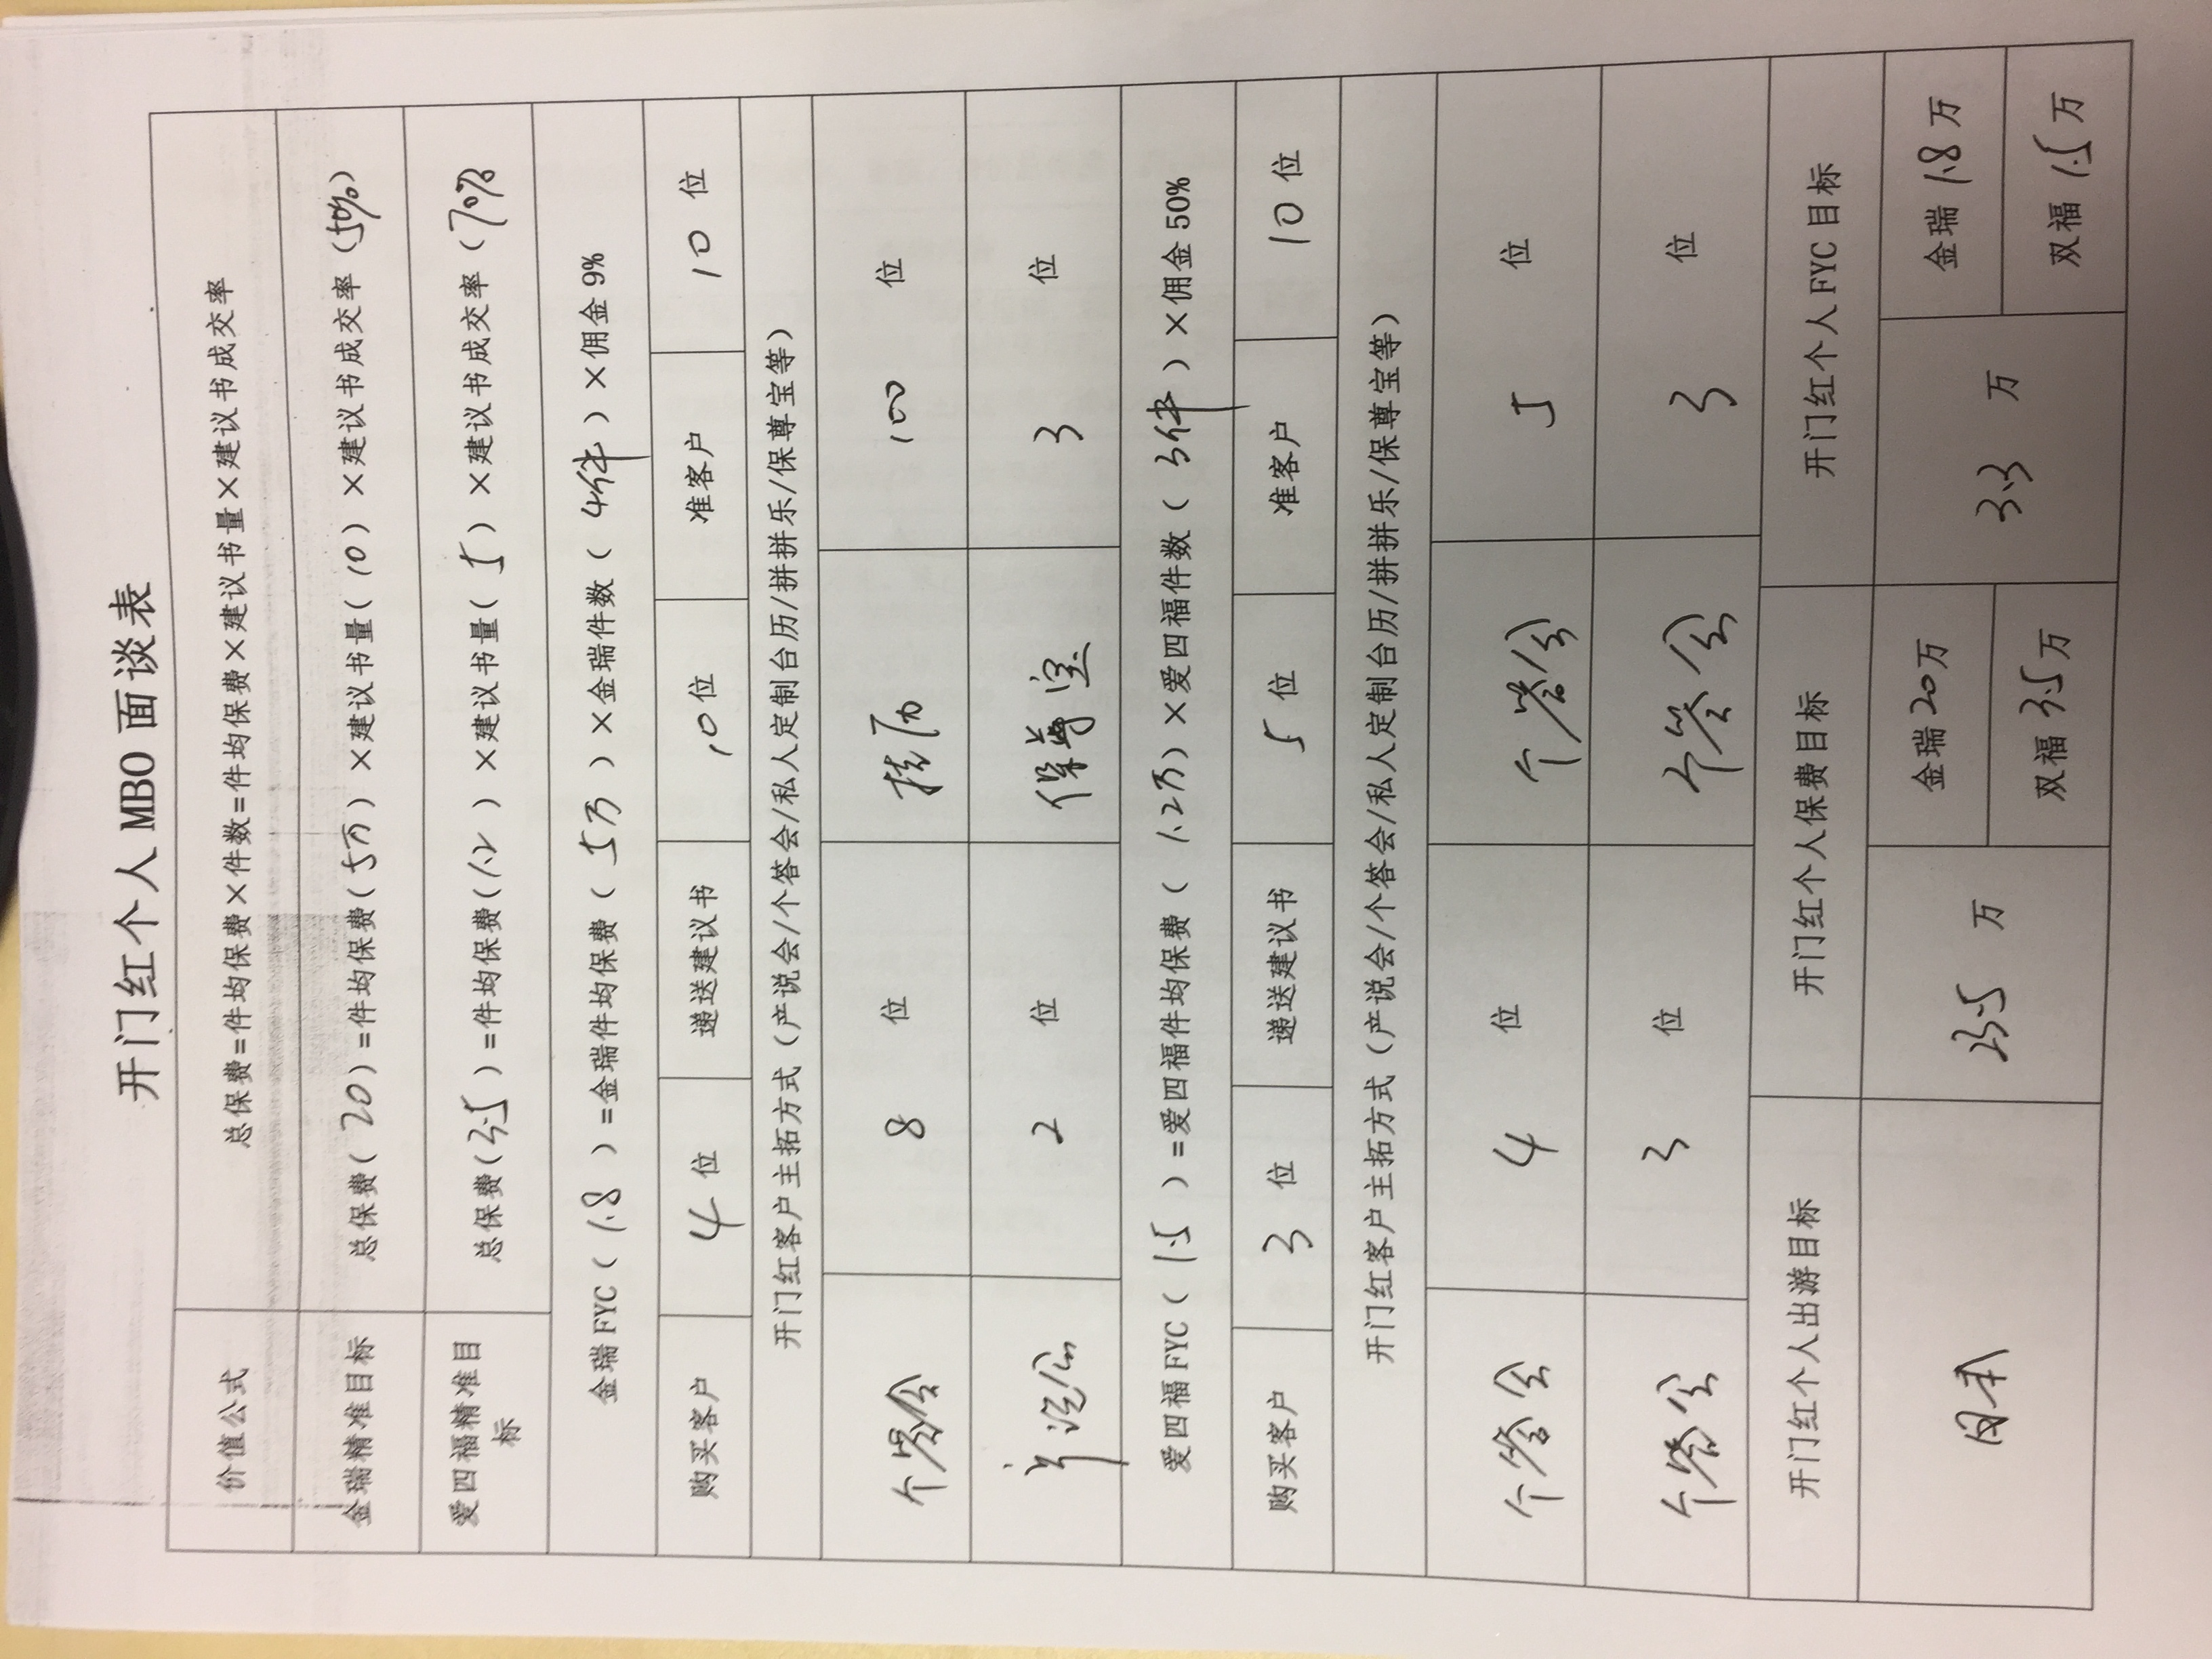 开门红个人 MBO 面谈表
价值公式 总保费=件均保费×件数=件均保费×建议书量×建议书成交率
金瑞精准目标 总保费(20)=件均保费(5万)×建议书量(10)×建议书成交率(50%)
爱四福精准目标 总保费(3.5)=件均保费(1.2)×建议书量(5)×建议书成交率(70%
金瑞 FYC(1.8)=金瑞件均保费(5万)×金瑞件数(4件)×佣金 9%
购买客户 4 位 递送建议书 10 位 准客户 10 位
开门红客户主拓方式(产说会/个答会/私人定制台历/拼拼乐/保尊宝等)
个答会 8 位 挂历 100 位
产说会 2 位 保尊宝 3 位
爱四福 FYC(1.5)=爱四福件均保费(1.2万)×爱四福件数(3件)×佣金 50%
购买客户 3 位 递送建议书 5 位 准客户 10 位
开门红客户主拓方式(产说会/个答会/私人定制台历/拼拼乐/保尊宝等)
个答会 4 位 个答会 5 位
个答会 3 位 个答会 3 位
开门红个人出游目标 开门红个人保费目标 开门红个人 FYC 目标
日本 23.5 万 金瑞 20 万 3.3 万 金瑞 1.8 万
双福 3.5 万 双福 1.5 万